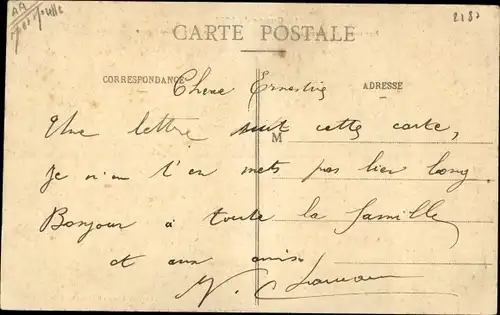 2187
CARTE POSTALE
CORRESPONDANCE
ADRESSE
Chere Ernestine
Une lettre suit cette carte,
M
Je n'en t'en mets pas bien long
Bonjour à toute la famille
et aux amis